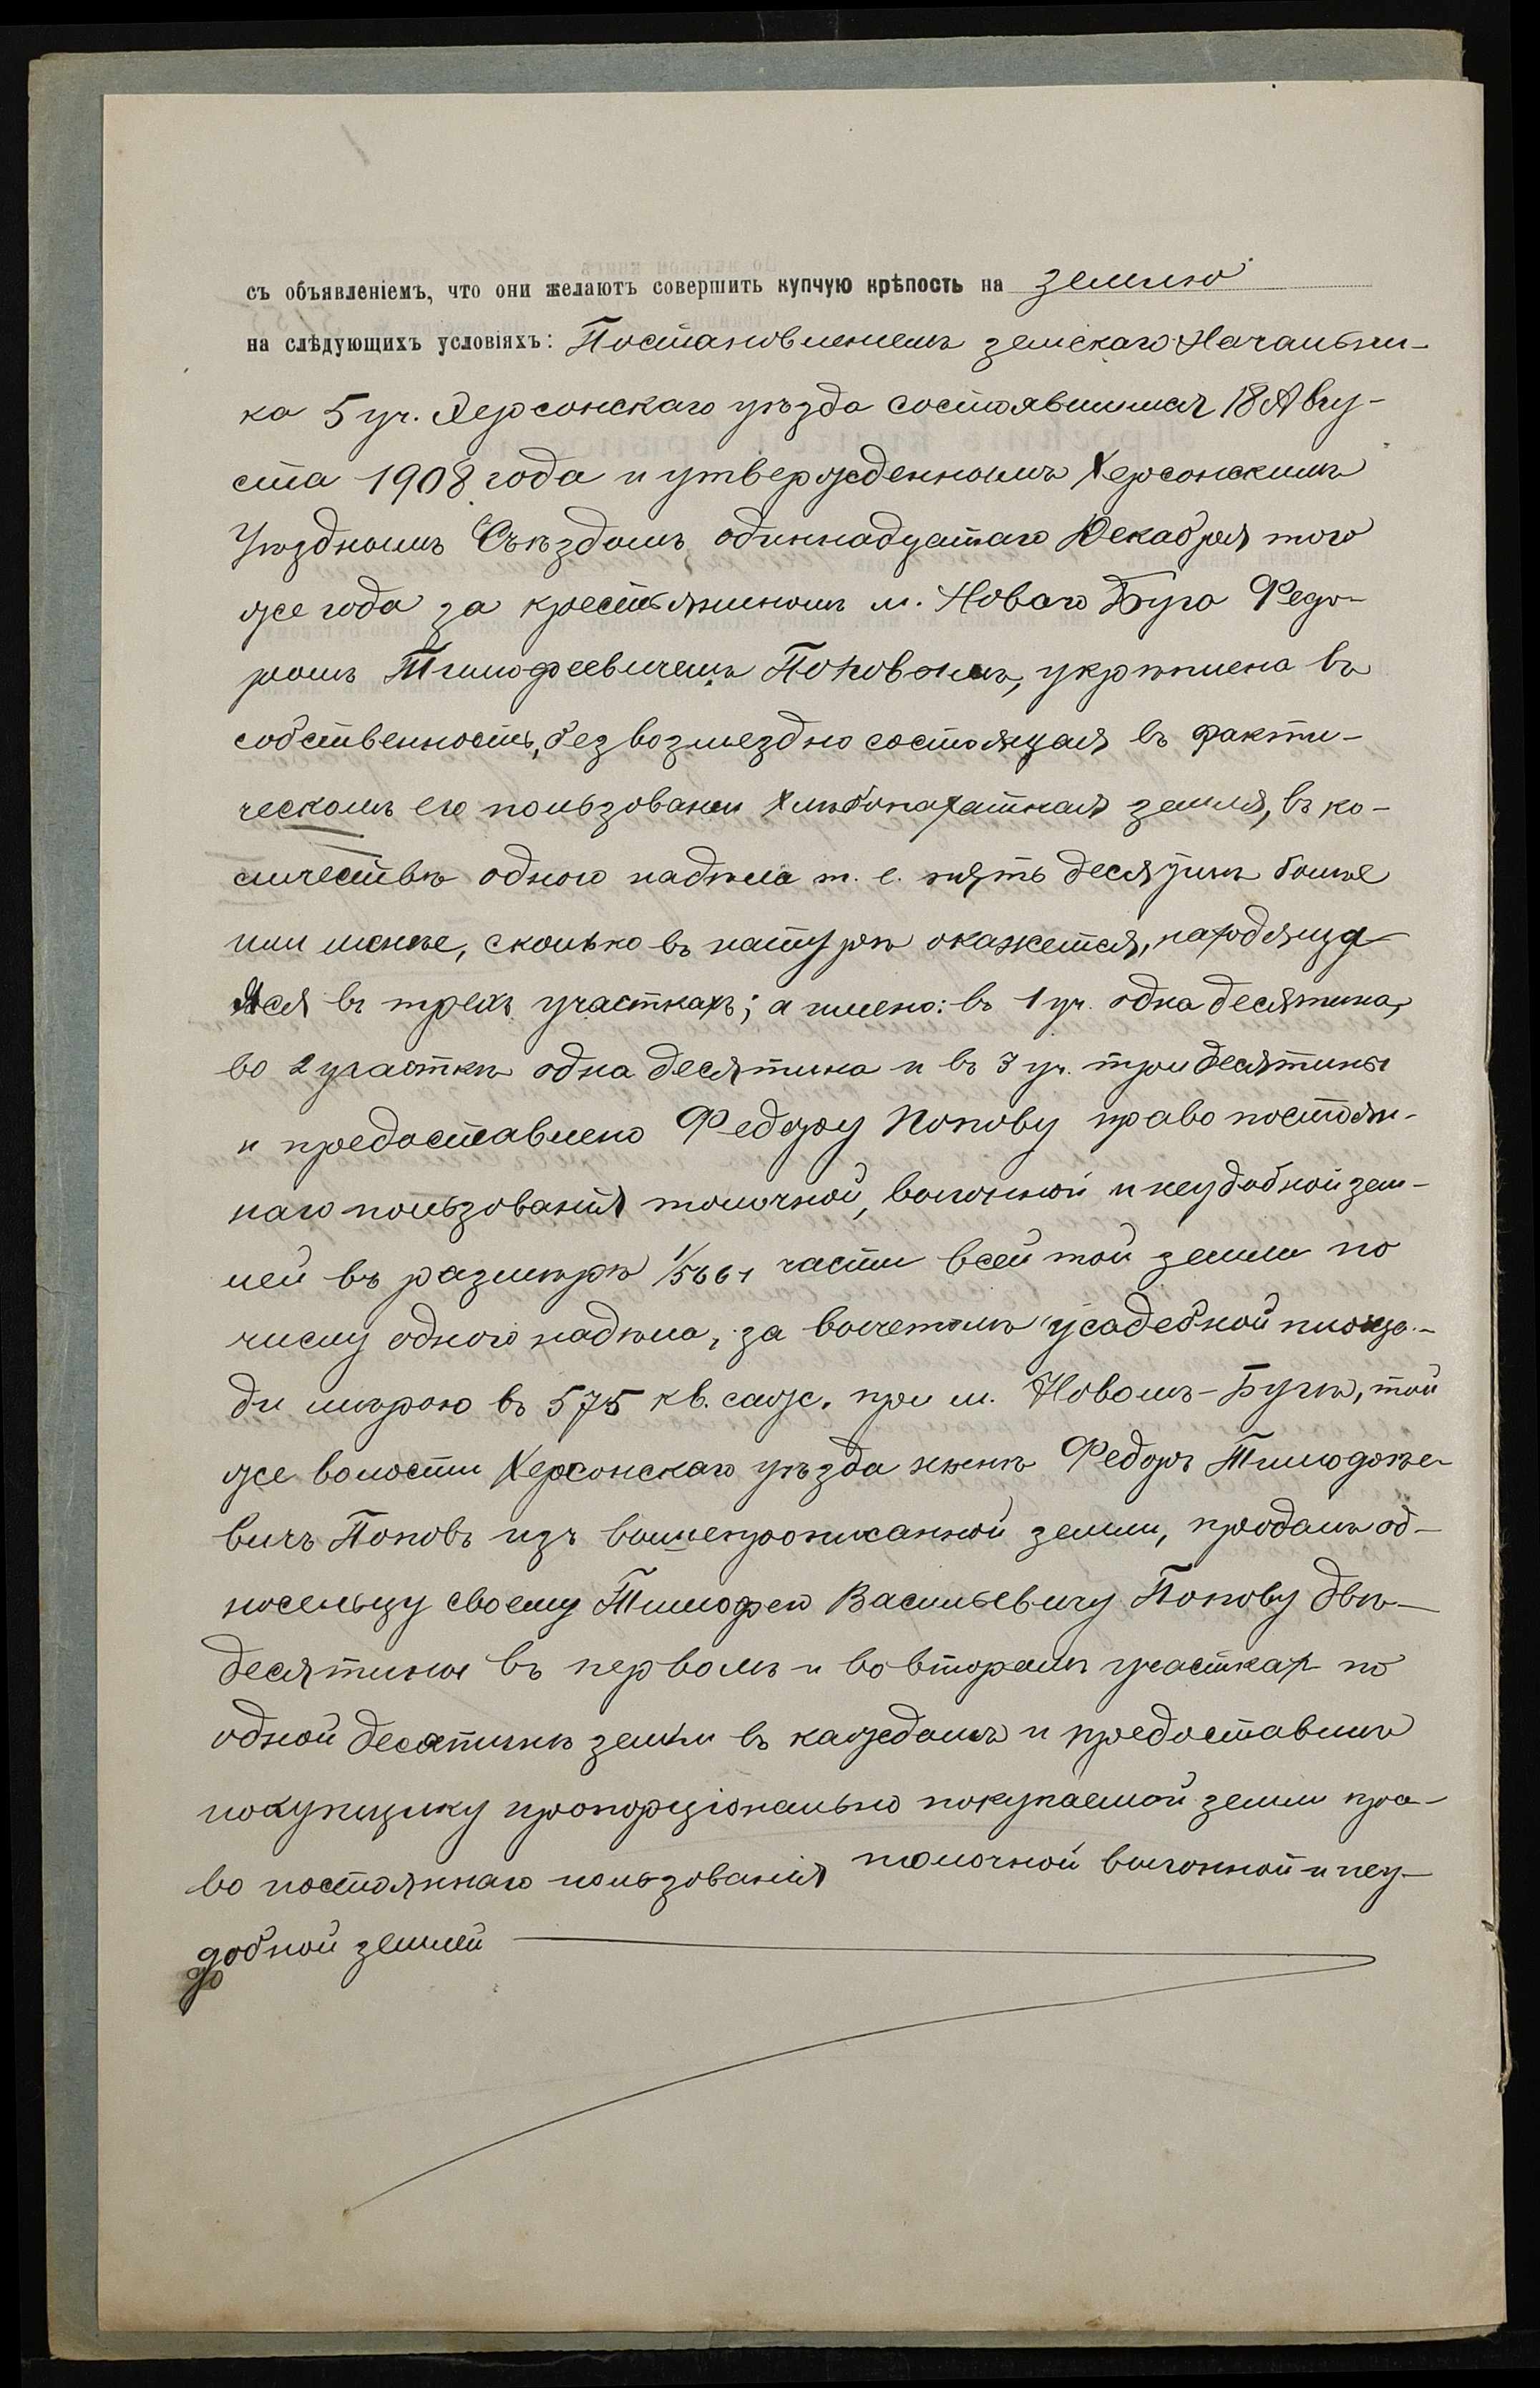 съ объявленіемъ, что они желаютъ совершить купчую крѣпость на землю
на слѣдующихъ условіяхъ: Постановленіемъ земскаго Начальни-
ка 5 уч. Херсонскаго уѣзда состоявшимся 18 Авгу-
ста 1908 года и утвержденнымъ Херсонскимъ
Уѣзднымъ Съѣздомъ одиннадцатаго Декабря того
же года за крестьяниномъ м. Новаго Буга Федо-
ромъ Тимофеевичемъ Поповымъ, укрѣплена въ
собственность, безвозмездно состоящая въ факти-
ческомъ его пользовании хлѣбопахатная земля, въ ко-
личествѣ одного надѣла т. е. пять десятинъ болѣе
или менѣе, сколько въ натурѣ окажется, находяща
яся въ трехъ участкахъ; а имено: въ 1 уч. одна десятина,
во 2 участкѣ одна десятина и въ 3 уч. три десятины
и предоставлено Федору Попову право постоян-
наго пользованія толочной, выгонной и неудобной зем-
лей въ размѣрѣ 1/5661 части всей той земли по
числу одного надѣла, за вычетомъ усадебной площа-
ди мѣрою въ 575 кв. саж. при м. Новомъ-Бугѣ, той
же волости Херсонскаго уѣзда нынѣ Федоръ Тимофѣе-
вичъ Поповъ изъ вышепрописанной земли, продалъ од-
носельцу своему Тимофею Васильевичу Попову двѣ
десятины въ первомъ и во второмъ участках по
одной десятинѣ земли въ каждомъ и предоставилъ
покупщику пропорціонально покупаемой земли пра-
во постояннаго пользованія толочной выгонной и неу-
добной землей